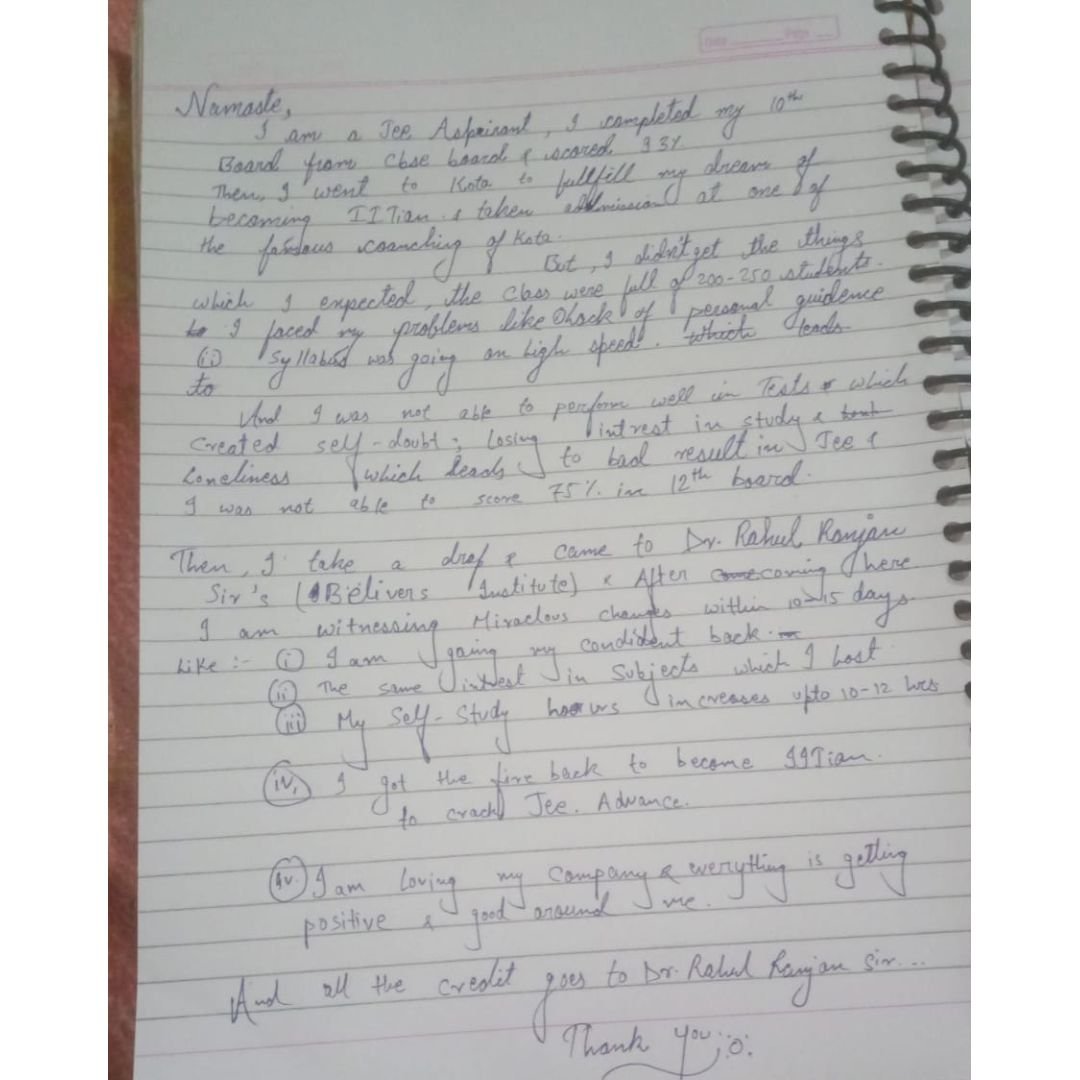 Date Page
Namaste,
I am a Jee Aspairant, I completed my 10th
Board from Cbse board & scored 93%
Then, I went to Kota to fullfill my dream of
becoming IITian & taken admission at one of
the famous coanching of Kota.
But, I didn't get the things
which I expected, the Class were full of 200-250 students.
I faced my problems like ① lack of personal guidence
(ii) Syllabus was going on high speed. which leads
to
And I was not able to perform well in Tests which
Created self-doubt, Losing intrest in study &
Loneliness which leads to bad result in Jee &
I was not able to score 75% in 12th board.
Then, I take a drop & came to Dr. Rahul Ranjan
Sir's (Bélivers Institute) & After coming here
I am witnessing Miraclous changes within 10-15 days.
Like :- (i) I am gaing my condident back.
(ii) The same intrest in Subjects which I Lost
(iii) My Self-Study hours increases upto 10-12 hrs
(iv) I got the fire back to become IITian.
to crack Jee. Advance.
(iv.) I am Loving my Company & everything is getting
positive & good around me.
And all the credit goes to Dr. Rahul Ranjan Sir...
Thank you